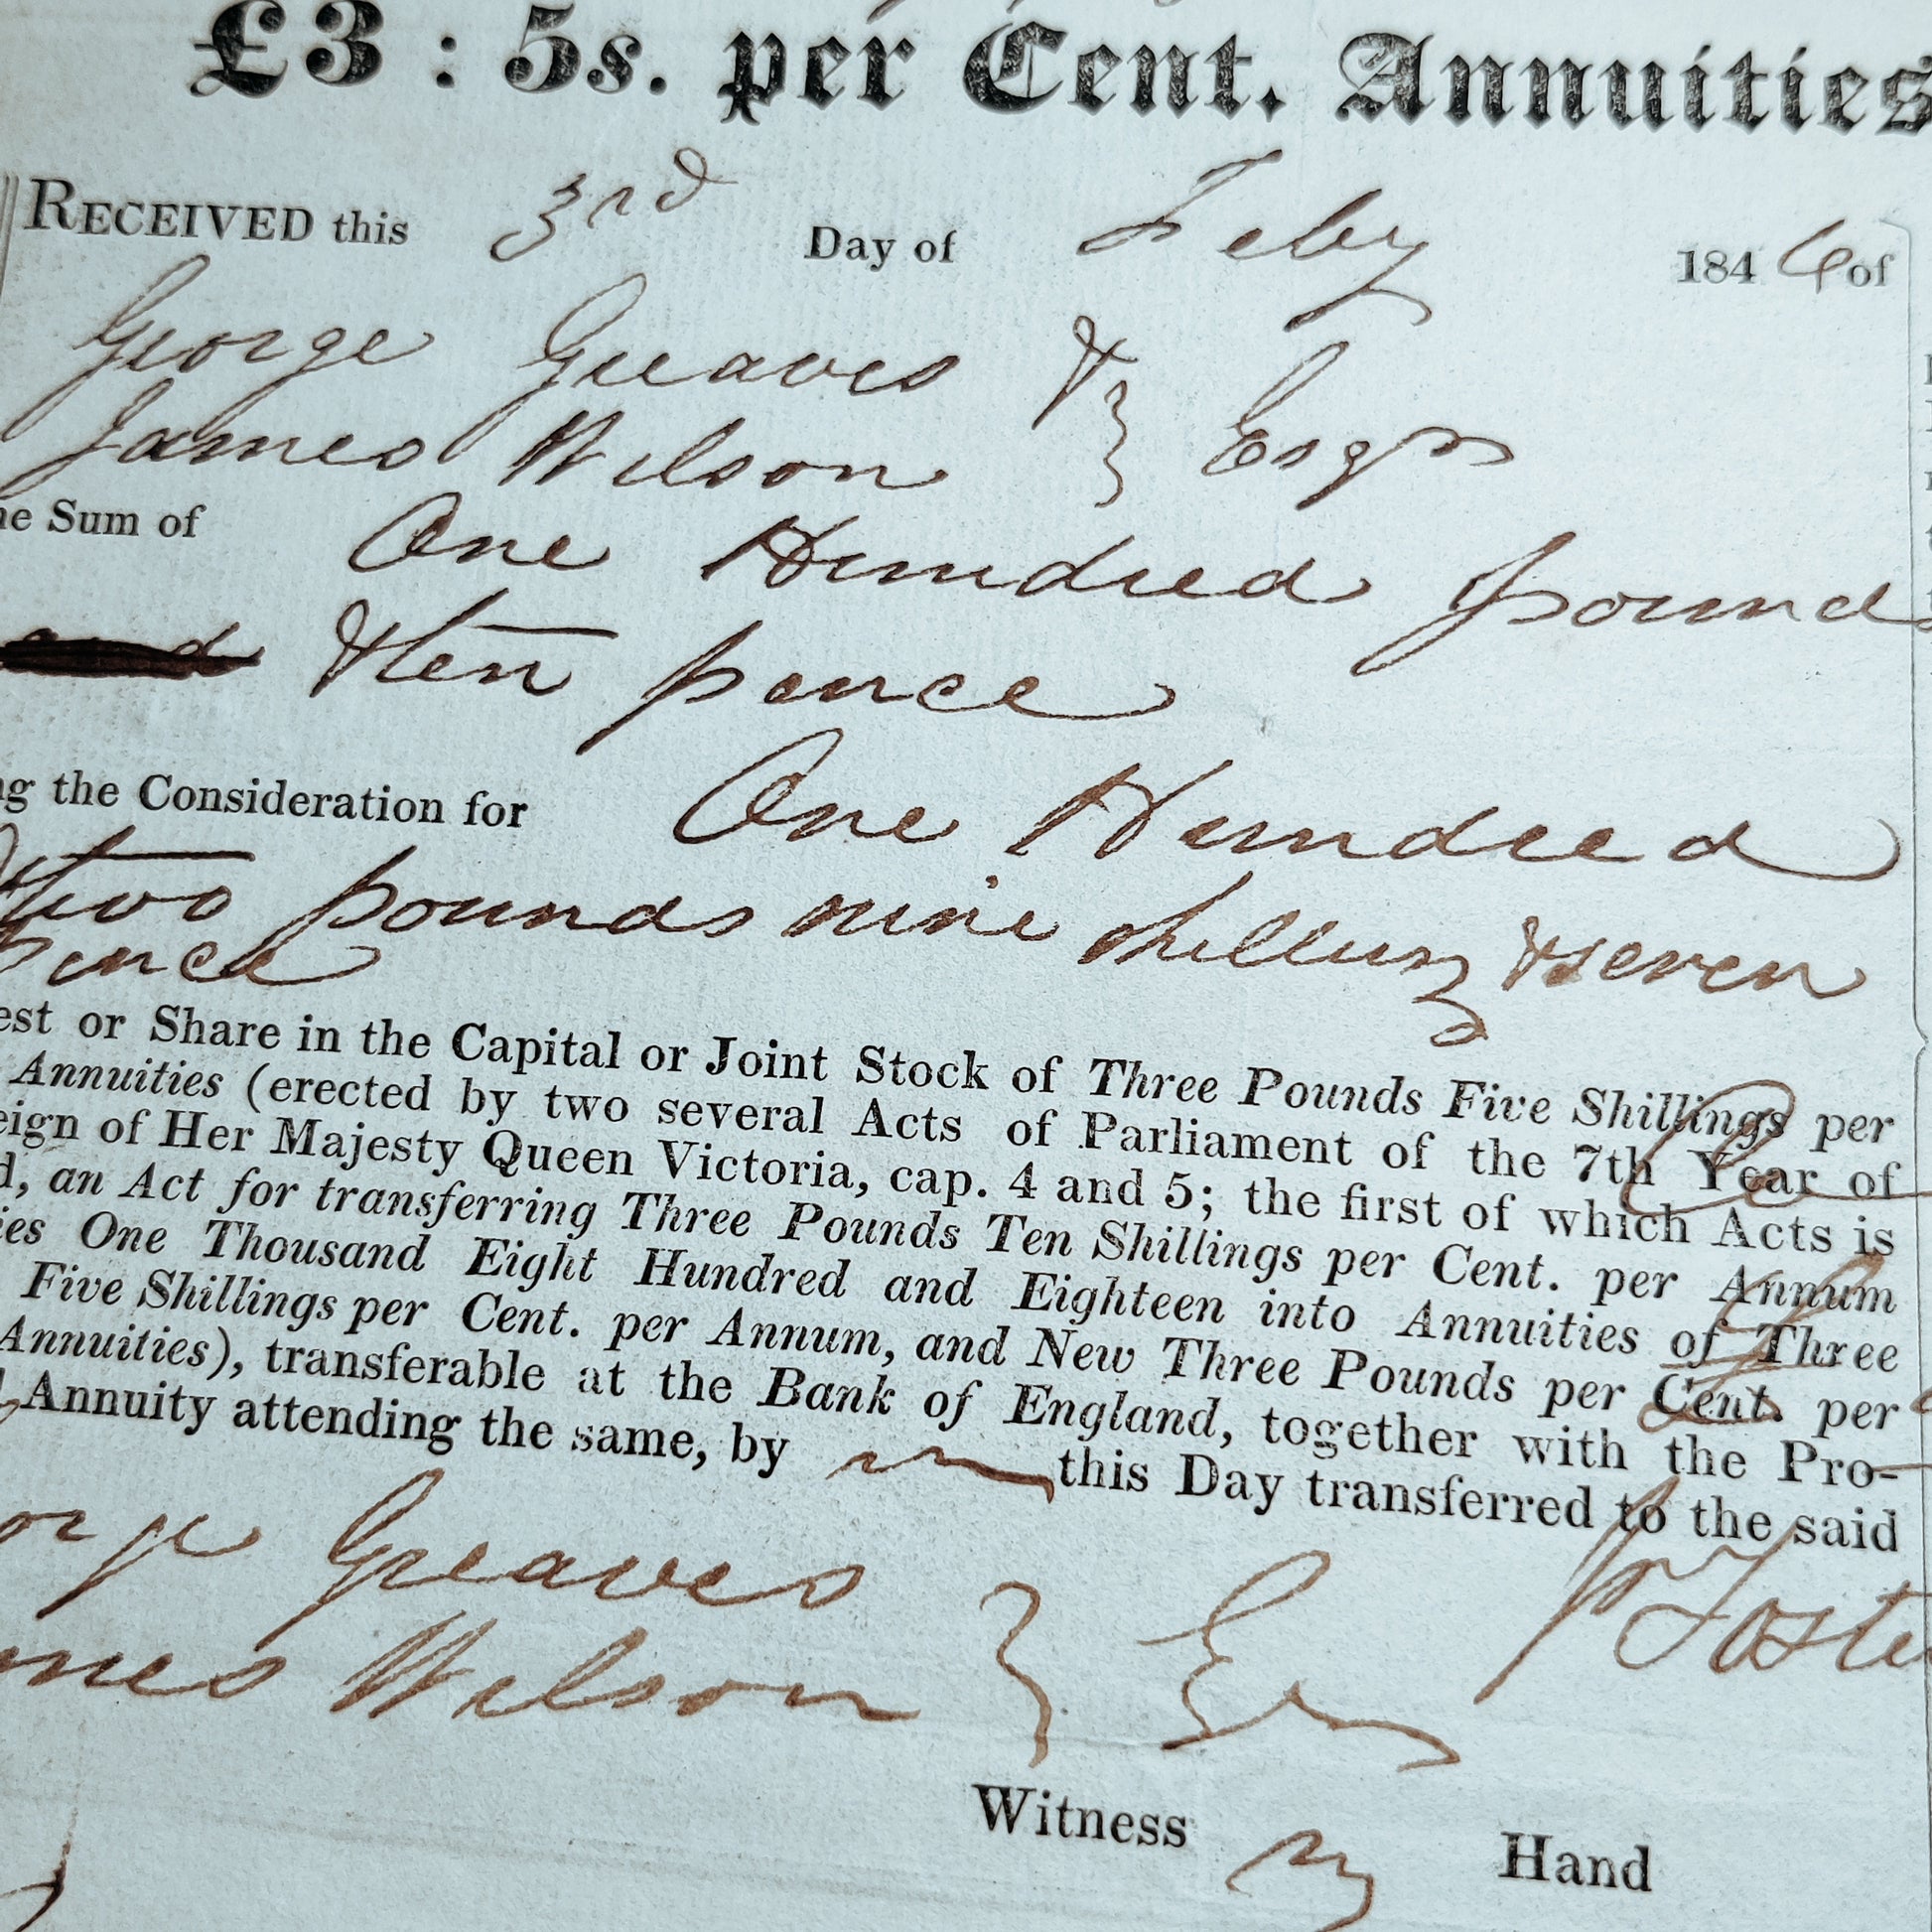 £3 : 5s. per Cent. Annuities
RECEIVED this 3rd Day of Feby 1846 of
George Greaves &
James Wilson } Esqrs
he Sum of One Hundred pounds
& ten pence
ng the Consideration for One Hundred
& two pounds nine shillings & seven
pence
est or Share in the Capital or Joint Stock of Three Pounds Five Shillings per
Annuities (erected by two several Acts of Parliament of the 7th Year of
eign of Her Majesty Queen Victoria, cap. 4 and 5; the first of which Acts is
d, an Act for transferring Three Pounds Ten Shillings per Cent. per Annum
ies One Thousand Eight Hundred and Eighteen into Annuities of Three
Five Shillings per Cent. per Annum, and New Three Pounds per Cent. per
Annuities), transferable at the Bank of England, together with the Pro-
Annuity attending the same, by this Day transferred to the said
orge Greaves
mes Wilson }
Foste
Witness my Hand